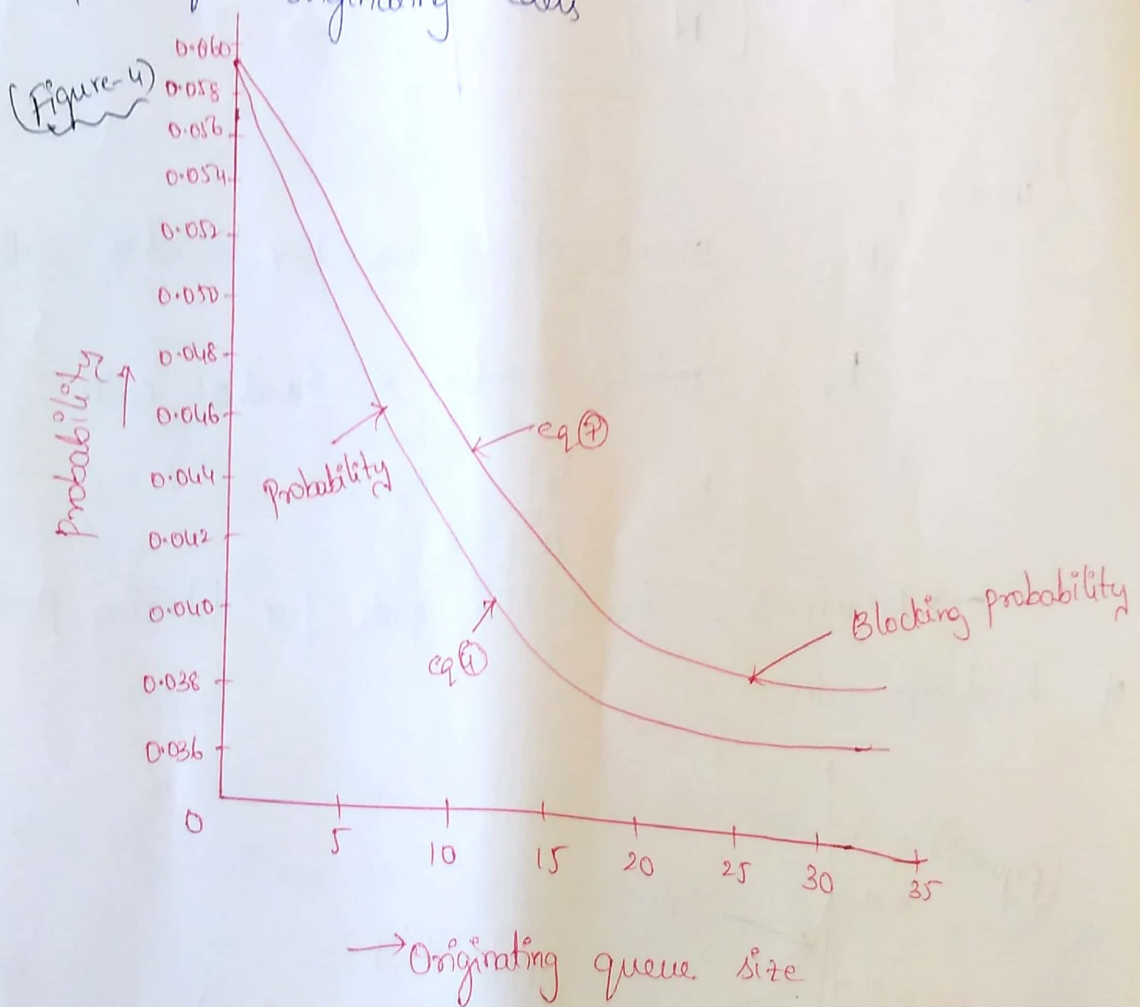 originating calls
(Figure-4)
0.060
0.058
0.056
0.054
0.052
0.050
0.048
0.046
0.044
0.042
0.040
0.038
0.036
0
Probability
Probability
eq 7
eq 4
Blocking probability
5 10 15 20 25 30 35
→ Originating queue size